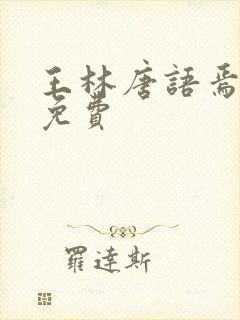 王林唐語焉
免費
羅達斯